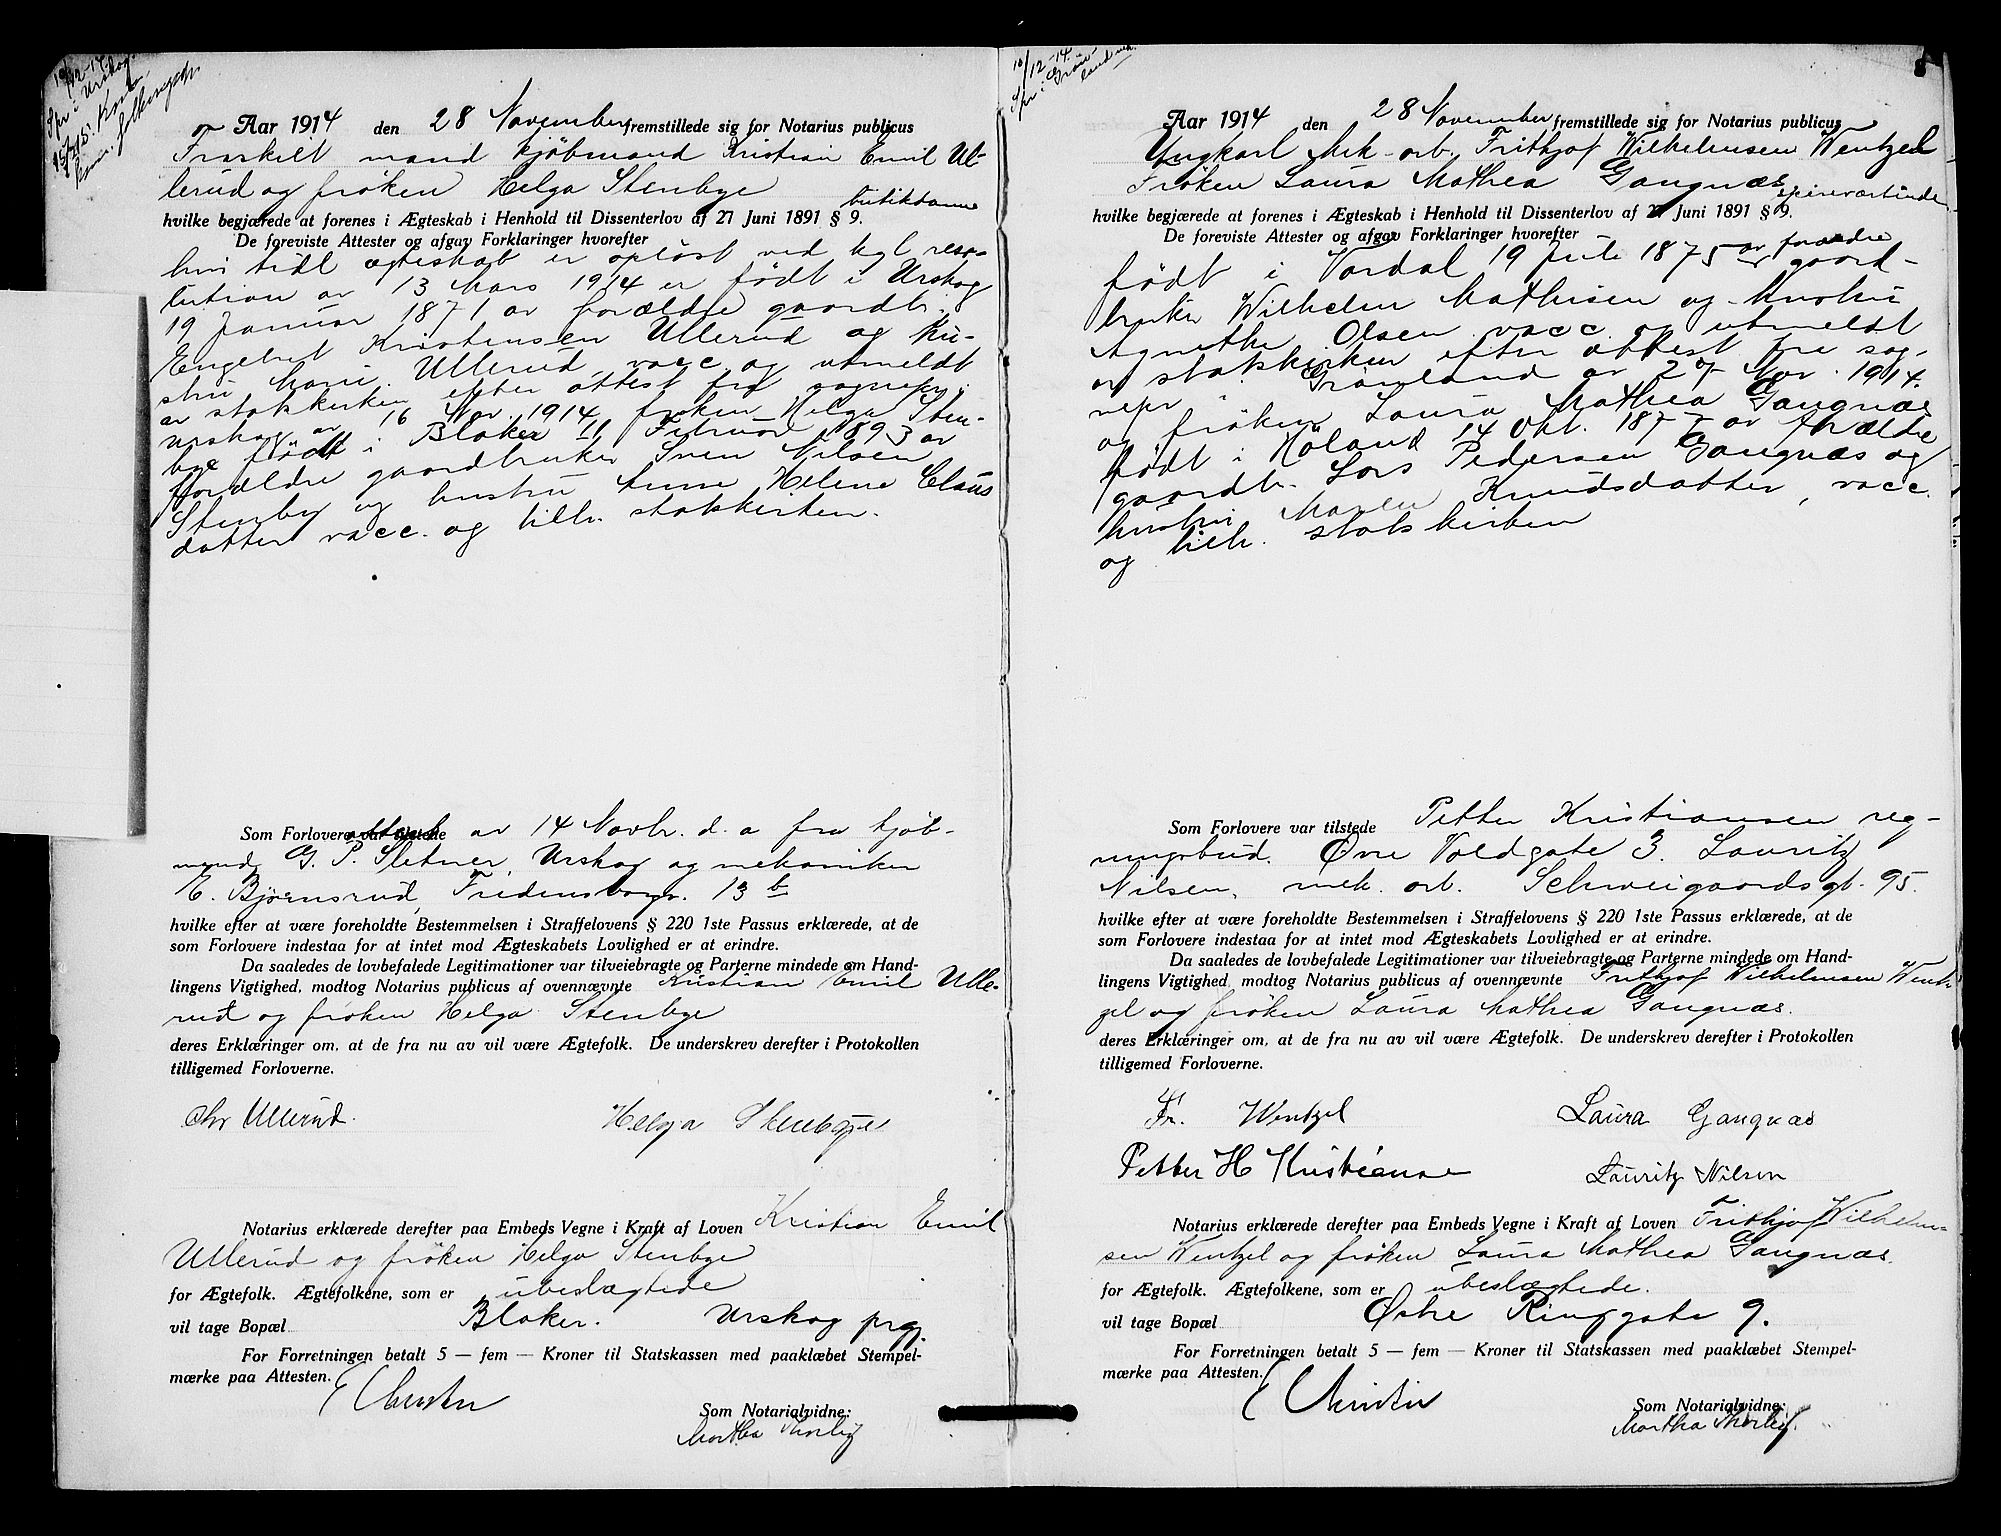 10/12-14.
Spr i Urskog
Aar 1914 den 28 November fremstillede sig for Notarius publicus
Fraskilt mand kjöbmand Kristian Emil Ul-
lerud og fröken Helga Stenbye
butikdame
hvilke begjærede at forenes i Ægteskab i Henhold til Dissenterlov af 27 Juni 1891 § 9.
De foreviste Attester og afgav Forklaringer hvorefter
hvis tidl ægteskab er oplöst ved kgl reso-
lution av 13 Mars 1914 er födt i Urskog
19 Januar 1871 av forældre gaardbr.
Engebret Kristensen Ullerud og hu-
stru Marie Ullerud, vacc. og utmeldt
av statskirken efter attest fra sognepr. i
Urskog av 16 Nov. 1914, fröken Helga Sten-
bye födt i Blaker 11 Februar 1893 av
forældre gaardbruker Sven Nilsen
Stenby og hustru Anne Helene Claus
datter vacc. og tilh. statskirken.
Som Forlovere var tilstede attest av 14 Novbr. d. a fra kjöb-
mand G. P. Sletner, Urskog og mekaniker
E. Bjørnsrud, Fredensborgv. 13 b
hvilke efter at være foreholdte Bestemmelsen i Straffelovens § 220 1ste Passus erklærede, at de
som Forlovere indestaa for at intet mod Ægteskabets Lovlighed er at erindre.
Da saaledes de lovbefalede Legitimationer var tilveiebragte og Parterne mindede om Hand-
lingens Vigtighed, modtog Notarius publicus af ovennævnte Kristian Emil Ulle-
rud og fröken Helga Stenbye
deres Erklæringer om, at de fra nu av vil være Ægtefolk. De underskrev derefter i Protokollen
tilligemed Forloverne.
Chr Ullerud. Helga Stenbye
Notarius erklærede derefter paa Embeds Vegne i Kraft af Loven Kristian Emil
Ullerud og fröken Helga Stenbye
for Ægtefolk. Ægtefolkene, som er ubeslægtede
vil tage Bopæl Blaker. Urskog prgj.
For Forretningen betalt 5 — fem — Kroner til Statskassen med paaklæbet Stempel-
mærke paa Attesten.
Som Notarialvidne:
Martha
8
10/12-14.
Spr i Grøn-
land
Aar 1914 den 28 November fremstillede sig for Notarius publicus
Ungkarl Mek-arb. Frithjof Wilhelmsen Wentzel
Fröken Laura Mathea Gangnæs
spisevertinde
hvilke begjærede at forenes i Ægteskab i Henhold til Dissenterlov af 27 Juni 1891 § 9.
De foreviste Attester og afgav Forklaringer hvorefter
födt i Vardal 19 Juli 1875 av forældre gaard-
bruker Wilhelm Mathisen og hustru
Agnethe Olsen vacc. og utmeldt
av statskirken efter attest fra sog-
nepr Grønland av 27 Nov. 1914.
og fröken Laura Mathea Gangnæs
födt i Höland 14 Okt. 1877 av forældre
gaardbr. Lars Pedersen Gangnæs og
hustru Maren Knudsdatter, vacc.
og tilh. statskirken
Som Forlovere var tilstede Petter Kristiansen reg-
ningsbud. Øvre Voldgate 3. Lauritz
Nilsen, mek. arb. Schweigaardsgt. 95.
hvilke efter at være foreholdte Bestemmelsen i Straffelovens § 220 1ste Passus erklærede, at de
som Forlovere indestaa for at intet mod Ægteskabets Lovlighed er at erindre.
Da saaledes de lovbefalede Legitimationer var tilveiebragte og Parterne mindede om Hand-
lingens Vigtighed, modtog Notarius publicus af ovennævnte Frithjof Wilhelmsen Went-
zel og fröken Laura Mathea Gangnæs.
deres Erklæringer om, at de fra nu av vil være Ægtefolk. De underskrev derefter i Protokollen
tilligemed Forloverne.
Fr. Wentzel Laura Gangnæs
Petter H Kristiansen Lauritz Nilsen
Notarius erklærede derefter paa Embeds Vegne i Kraft af Loven Frithjof Wilhelm-
sen Wentzel og fröken Laura Mathea Gangnæs.
for Ægtefolk. Ægtefolkene, som er ubeslægtede.
vil tage Bopæl Østre Ringgate 9.
For Forretningen betalt 5 — fem — Kroner til Statskassen med paaklæbet Stempel-
mærke paa Attesten.
Som Notarialvidne:
Martha